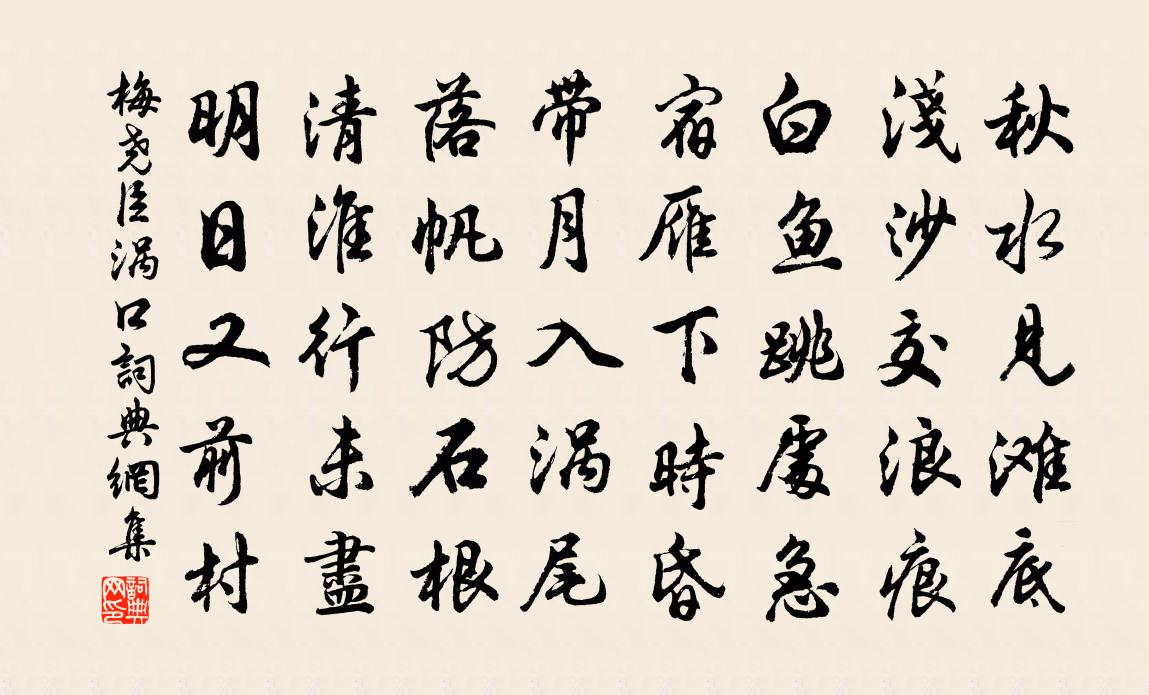 秋水见滩底
淺沙交浪痕
白鱼跳處急
宿雁下時昏
带月入涡尾
落帆防石根
清淮行未盡
明日又前村
梅尧臣涡口詞典網集
詞典网印